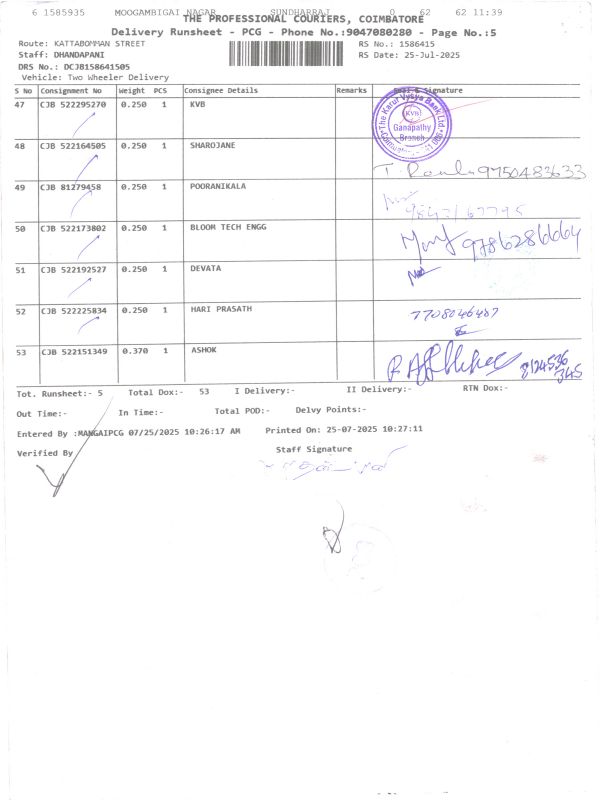 6 1585935 MOOGAMBIGAI NAGAR SUNDHARRAJ 0 62 62 11:39
THE PROFESSIONAL COURIERS, COIMBATORE
Delivery Runsheet - PCG - Phone No.:9047080280 - Page No.:5
Route: KATTABOMMAN STREET RS No.: 1586415
Staff: DHANDAPANI RS Date: 25-Jul-2025
DRS No.: DCJB158641505
Vehicle: Two Wheeler Delivery
S No Consignment No Weight PCS Consignee Details Remarks Seal & Signature
47 CJB 522295270 0.250 1 KVB
The Karur Vysya Bank Ltd.
KVB
Ganapathy
Branch
48 CJB 522164505 0.250 1 SHAROJANE
9750483633
49 CJB 81279458 0.250 1 POORANIKALA
50 CJB 522173802 0.250 1 BLOOM TECH ENGG
9786286664
51 CJB 522192527 0.250 1 DEVATA
52 CJB 522225834 0.250 1 HARI PRASATH
7708046487
53 CJB 522151349 0.370 1 ASHOK
8124536
345
Tot. Runsheet:- 5 Total Dox:- 53 I Delivery:- II Delivery:- RTN Dox:-
Out Time:- In Time:- Total POD:- Delvy Points:-
Entered By :MANGAIPCG 07/25/2025 10:26:17 AM Printed On: 25-07-2025 10:27:11
Verified By Staff Signature